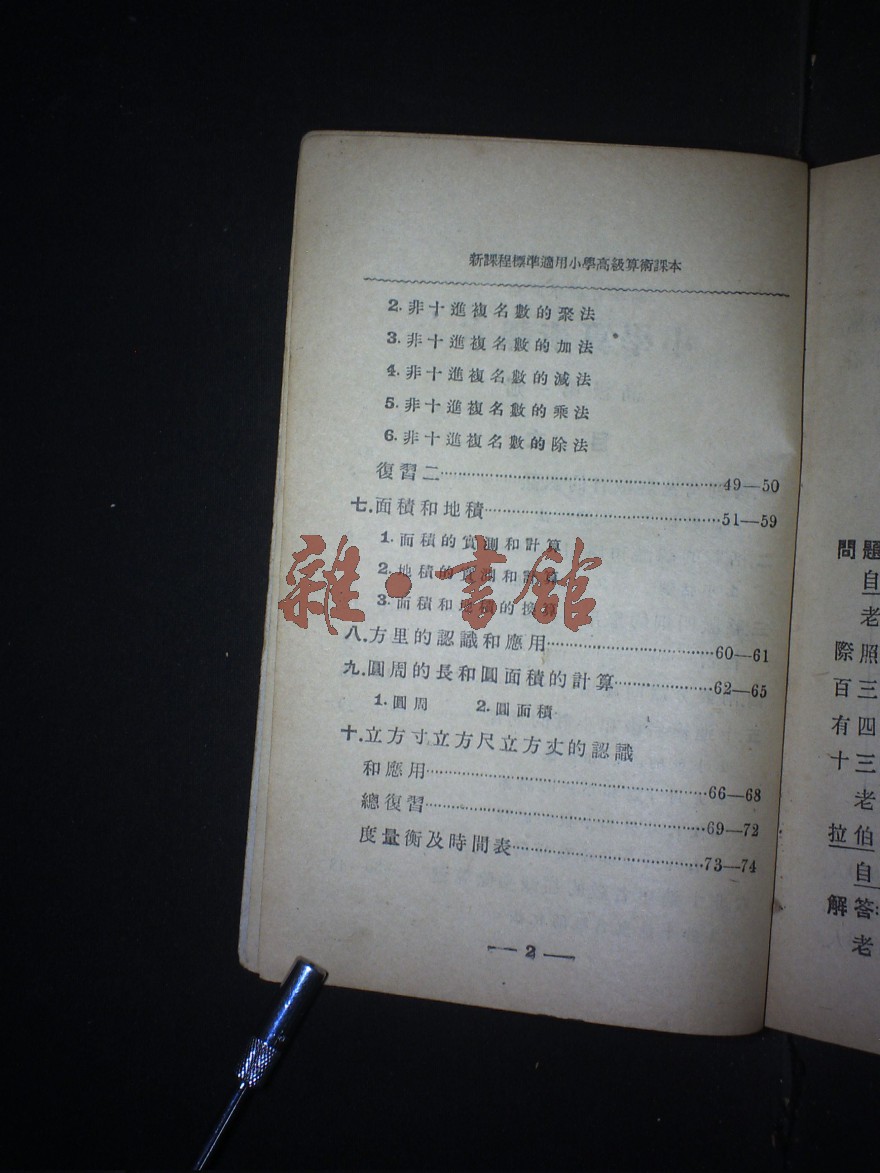 新課程標準適用小學高級算術課本
2. 非十進複名數的聚法
3. 非十進複名數的加法
4. 非十進複名數的減法
5. 非十進複名數的乘法
6. 非十進複名數的除法
復習二……49—50
七. 面積和地積……51—59
1. 面積的實測和計算
2. 地積的實測和計算
3. 面積和地積的換算
八. 方里的認識和應用……60—61
九. 圓周的長和圓面積的計算……62—65
1. 圓周 2. 圓面積
十. 立方寸立方尺立方丈的認識
和應用……66—68
總復習……69—72
度量衡及時間表……73—74
— 2 —
雜·書館
問題
自
老
際照
百三
有四
十三
老
拉伯
自
解答:
老